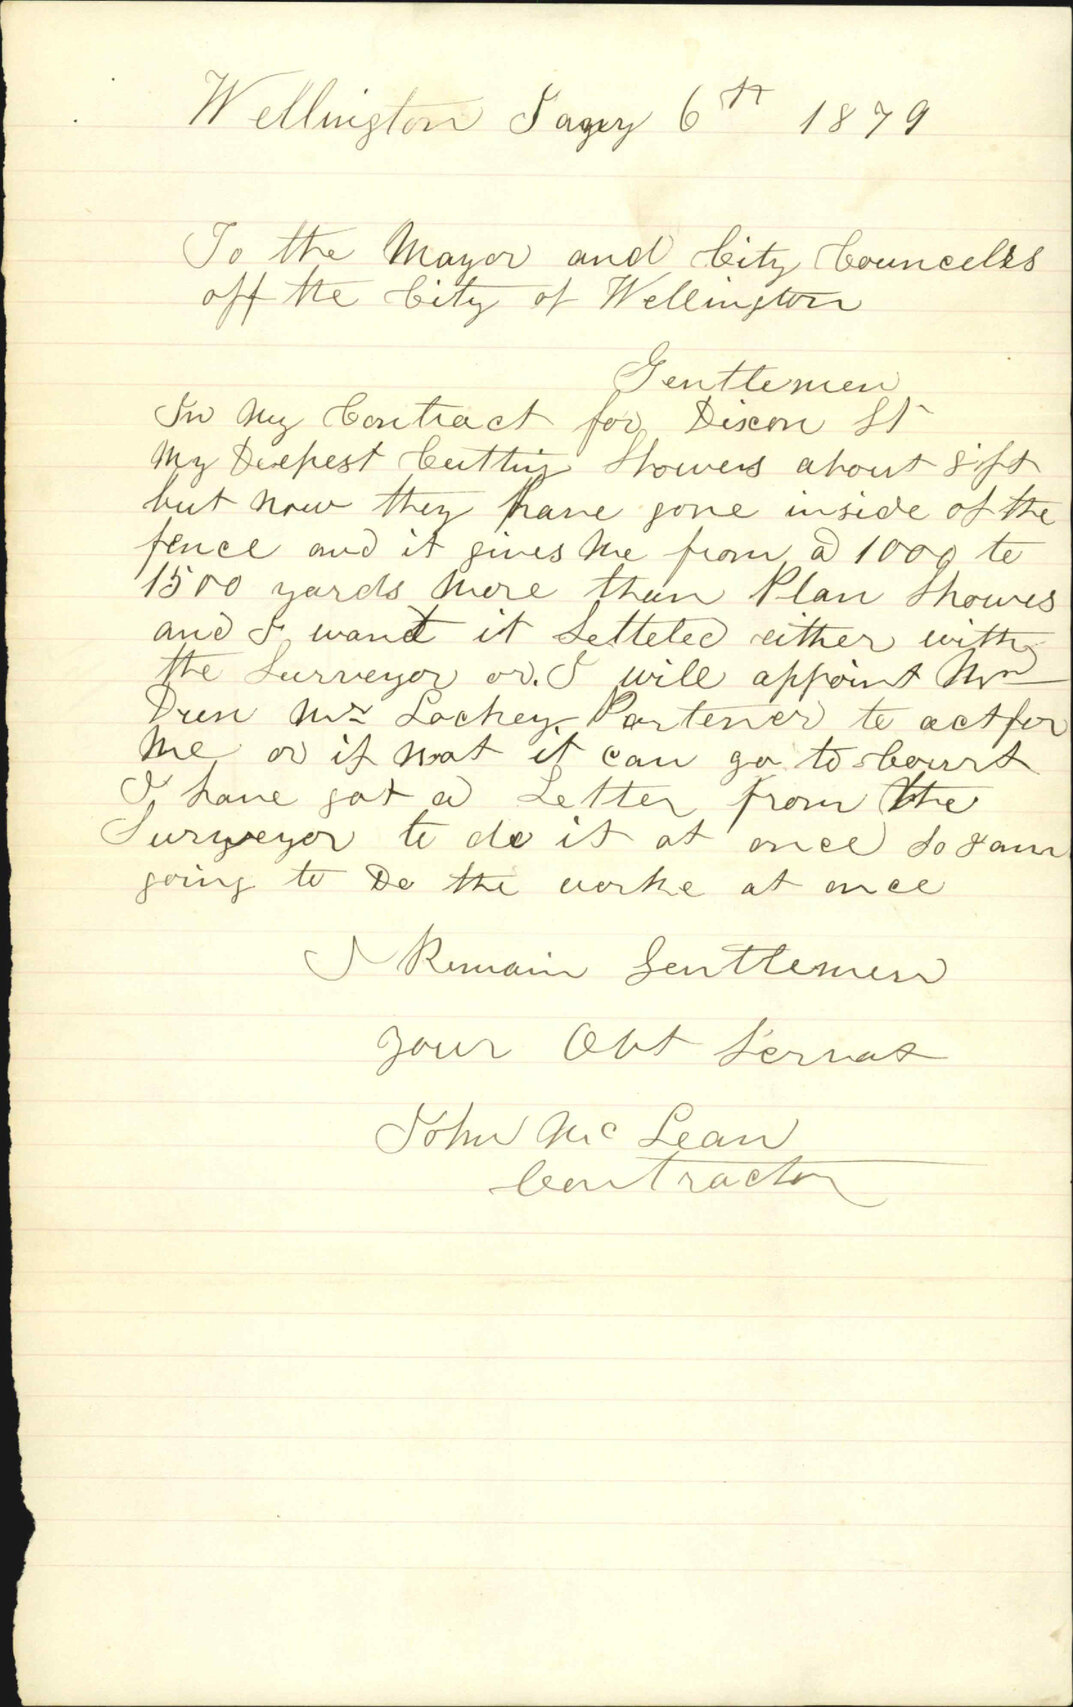 Wellington Jany 6th 1879
To the Mayor and City Councelrs
off the City of Wellington
Gentlemen
In My Contract for Dixon St
My Deepest Cutting Showes about 8 ft
but now they have gone inside of the
fence and it gives Me from a 1000 to
1500 yards More than Plan Showes
and I want it Setteled either with
the Surveyor or I will appoint
Mr Lockey Partener to act for
Me or if not it can go to Court
I have got a Letter from the
Surveyor to do it at once So I am
going to Do the worke at once
I Remain Gentlemen
your Obt Servat
John Mc Lean
Contractor